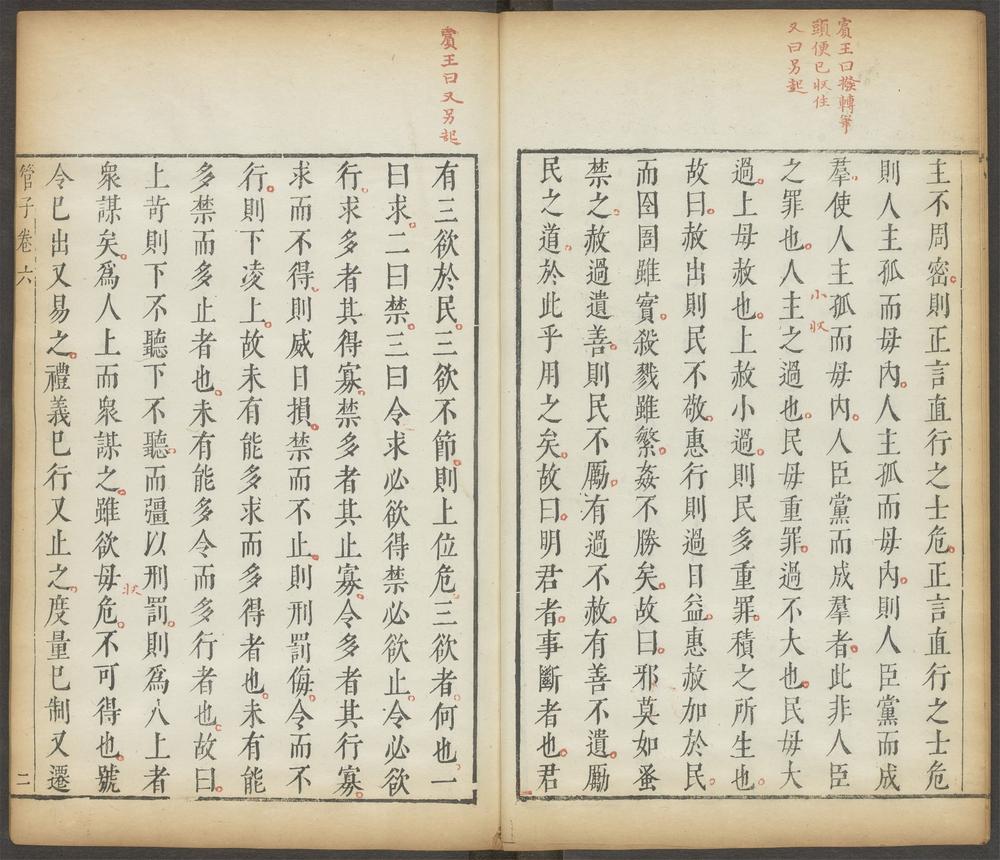 賓王曰撥轉筆
頭便已收住
又曰另起
主不周密則正言直行之士危正言直行之士危
則人主孤而毋內人主孤而毋內則人臣黨而成
羣使人主孤而毋內人臣黨而成羣者此非人臣
之罪也人主之過也民毋重罪過不大也民毋大
小收
過上毋赦也上赦小過則民多重罪積之所生也
故曰赦出則民不敬惠行則過日益惠赦加於民
而囹圄雖實殺戮雖繁姦不勝矣故曰邪莫如蚤
禁之赦過遺善則民不勵有過不赦有善不遺勵
民之道於此乎用之矣故曰明君者事斷者也君
賓王曰又另起
有三欲於民三欲不節則上位危三欲者何也一
曰求二曰禁三曰令求必欲得禁必欲止令必欲
行求多者其得寡禁多者其止寡令多者其行寡
求而不得則威日損禁而不止則刑罰侮令而不
行則下凌上故未有能多求而多得者也未有能
多禁而多止者也未有能多令而多行者也故曰
上苛則下不聽下不聽而彊以刑罰則爲人上者
衆謀矣爲人上而衆謀之雖欲毋危不可得也號
收
令已出又易之禮義已行又止之度量已制又遷
管子卷六
二